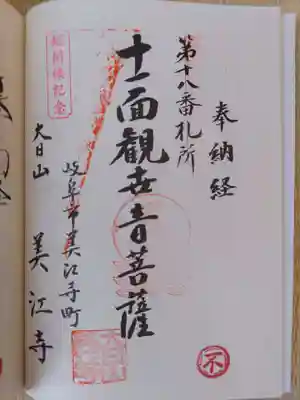 奉納経
第十八番札所
十一面観世音菩薩
岐阜市美江寺町
大日山 美江寺
総開帳記念
不